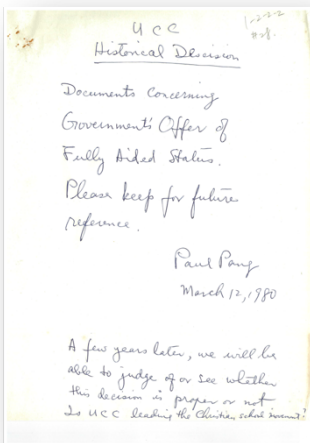 UCC
1-2-2-2
#28.
Historical Descision
Documents Concerning
Government's Offer of
Fully Aided Status.
Please keep for future
reference.
Paul Pang
March 12, 1980
A few years later, we will be
able to judge of or see whether
this decision is proper or not
Is UCC leading the Christian school